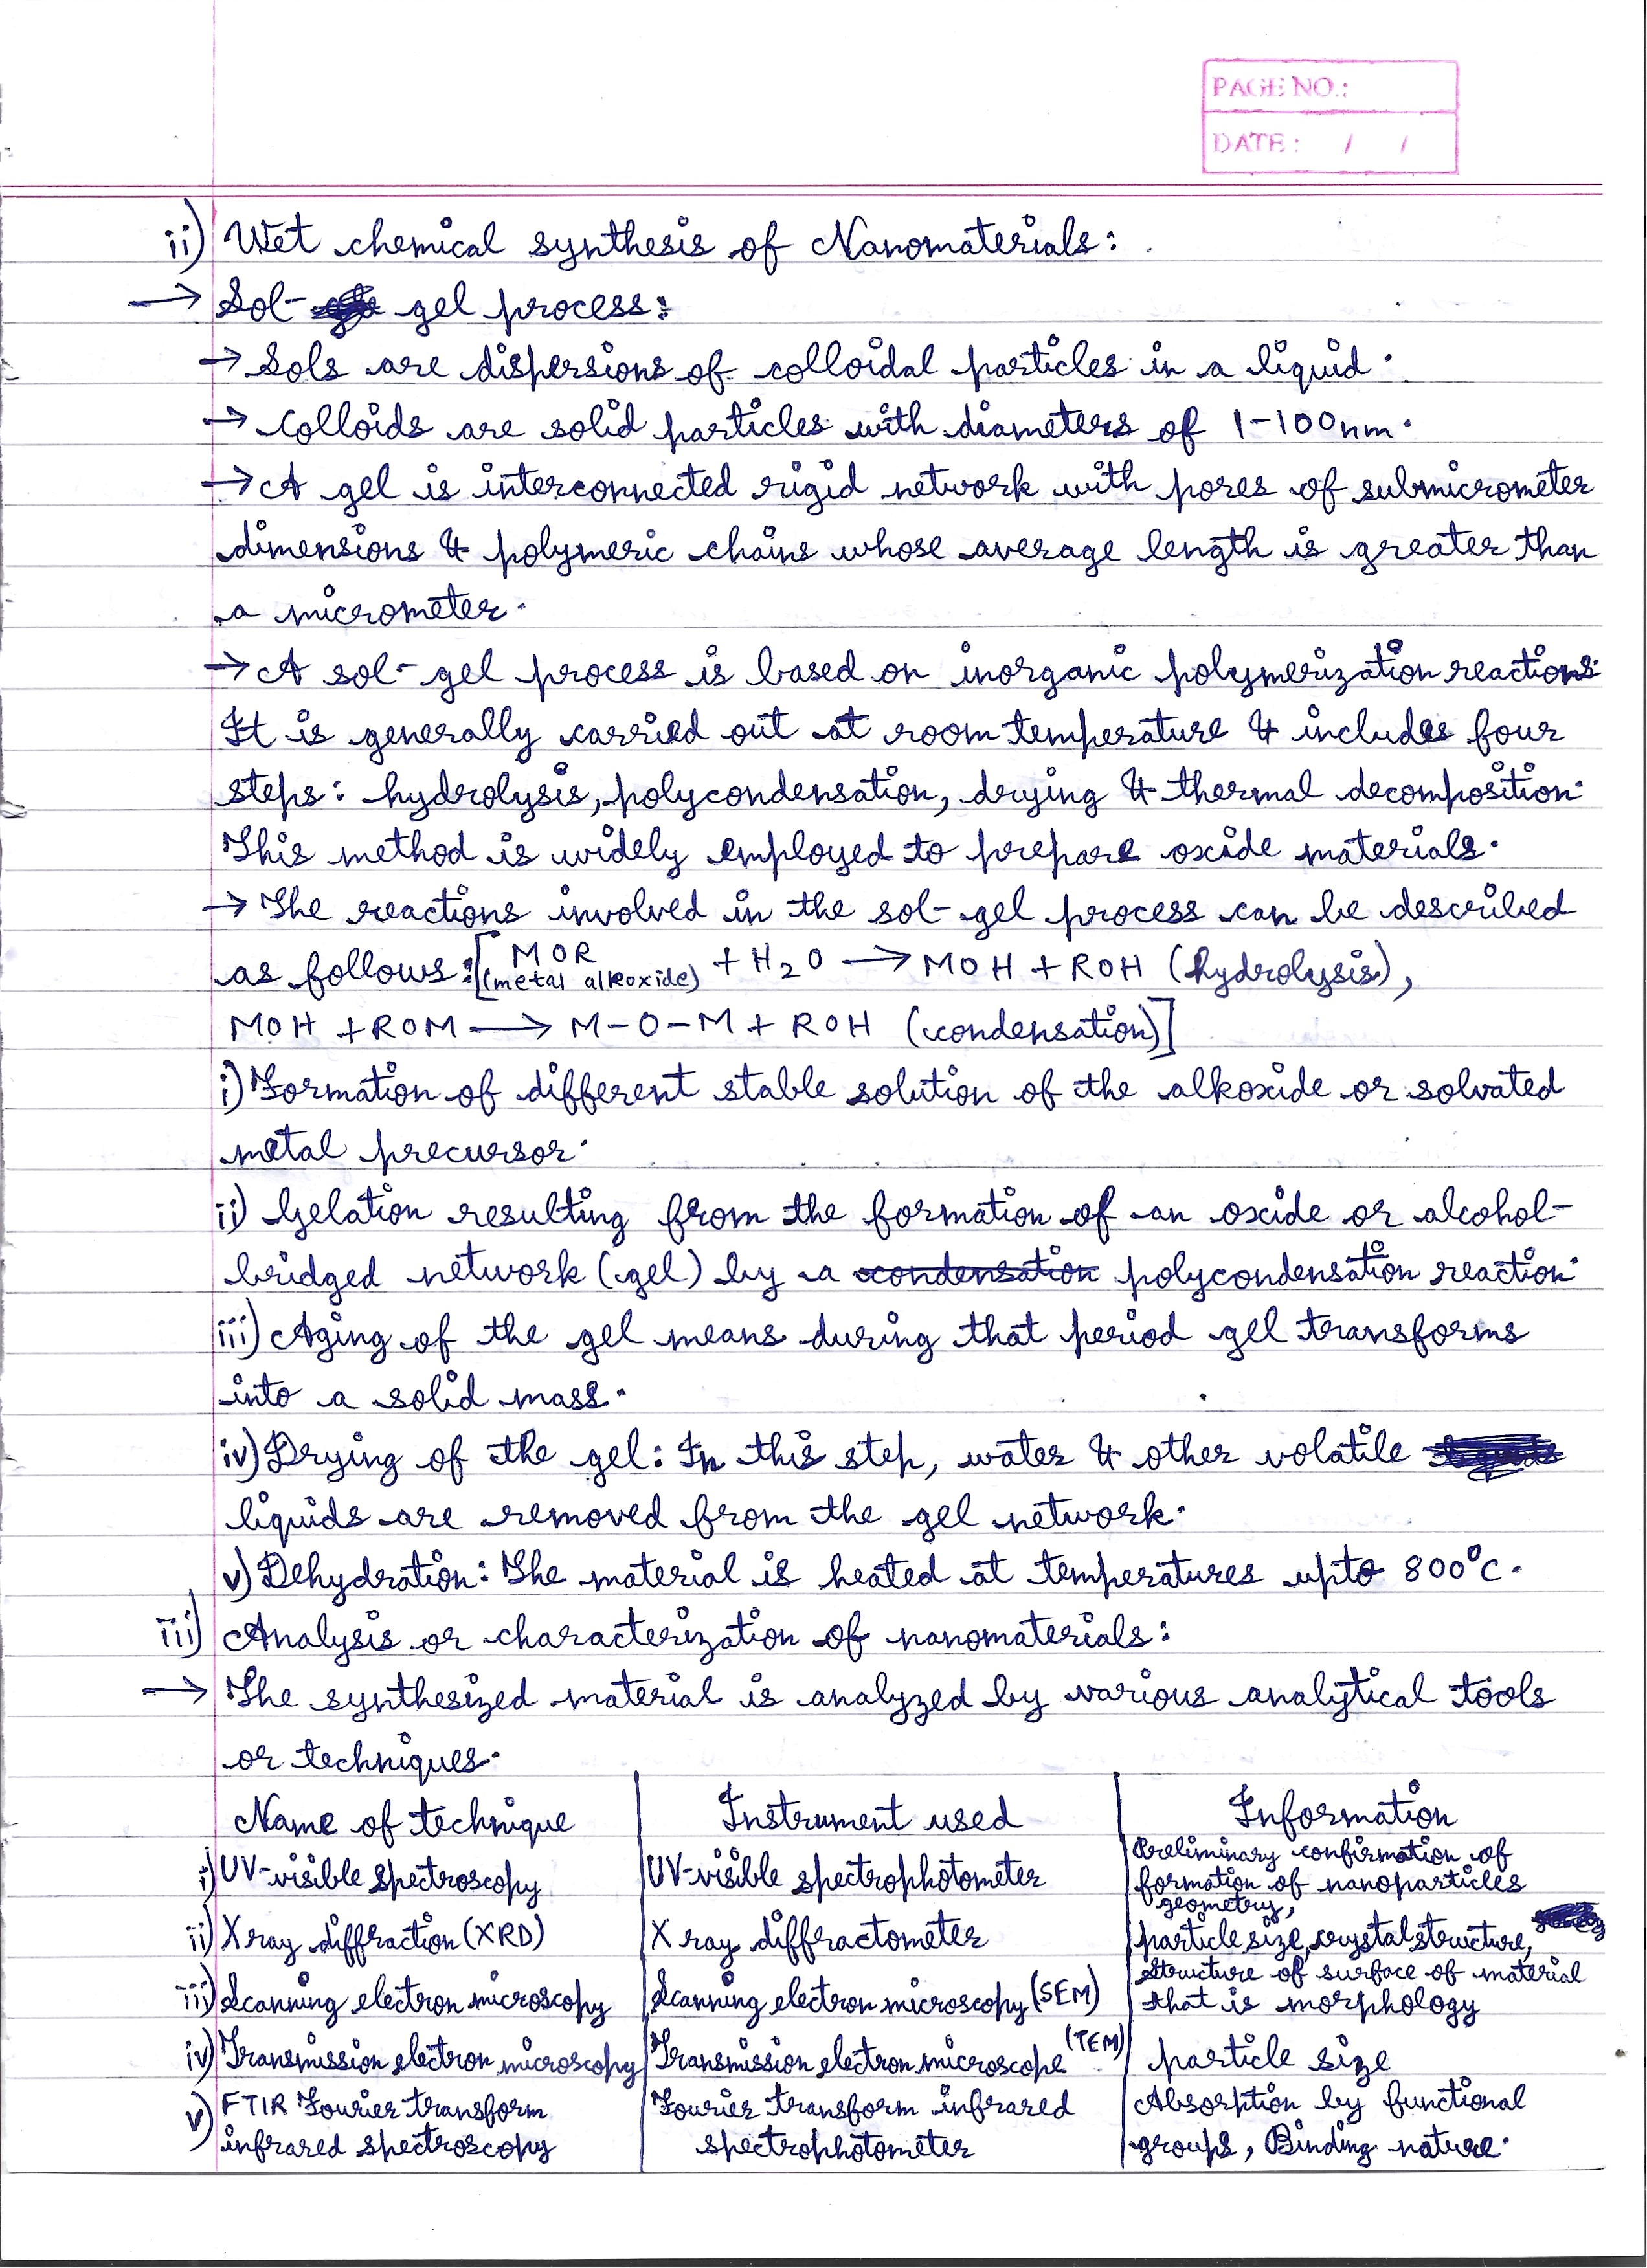 PAGE NO.:
DATE: / /
ii) Wet chemical synthesis of Nanomaterials:
→ Sol- gel process:
→ Sols are dispersions of colloidal particles in a liquid.
→ Colloids are solid particles with diameters of 1-100nm.
→ A gel is interconnected rigid network with pores of submicrometer
dimensions & polymeric chains whose average length is greater than
a micrometer.
→ A sol-gel process is based on inorganic polymerization reactions.
It is generally carried out at room temperature & includes four
steps: hydrolysis, polycondensation, drying & thermal decomposition.
This method is widely employed to prepare oxide materials.
→ The reactions involved in the sol-gel process can be described
as follows: [MOR (metal alkoxide) + H2O → MOH + ROH (hydrolysis),
MOH + ROM → M-O-M + ROH (condensation)]
i) Formation of different stable solution of the alkoxide or solvated
metal precursor.
ii) Gelation resulting from the formation of an oxide or alcohol-
bridged network (gel) by a condensation polycondensation reaction.
iii) Aging of the gel means during that period gel transforms
into a solid mass.
iv) Drying of the gel: In this step, water & other volatile
liquids are removed from the gel network.
v) Dehydration: The material is heated at temperatures upto 800°C.
iii) Analysis or characterization of nanomaterials:
→ The synthesized material is analyzed by various analytical tools
or techniques.
Name of technique Instrument used Information
i) UV-visible spectroscopy UV-visible spectrophotometer Preliminary confirmation of
formation of nanoparticles
geometry,
ii) X ray diffraction (XRD) X ray diffractometer particle size, crystal structure,
iii) Scanning electron microscopy Scanning electron microscopy (SEM) Structure of surface of material
that is morphology
iv) Transmission electron microscopy Transmission electron microscope (TEM) particle size
v) FTIR Fourier transform Fourier transform infrared Absorption by functional
infrared spectroscopy spectrophotometer groups, Binding nature.